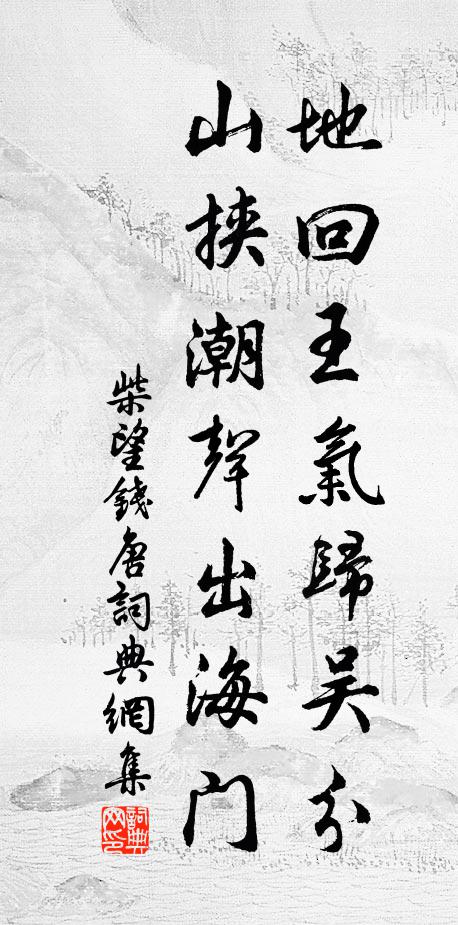 地回王氣歸吴分
山挾潮聲出海門
柴望錢唐詞典網集
詞典
网印